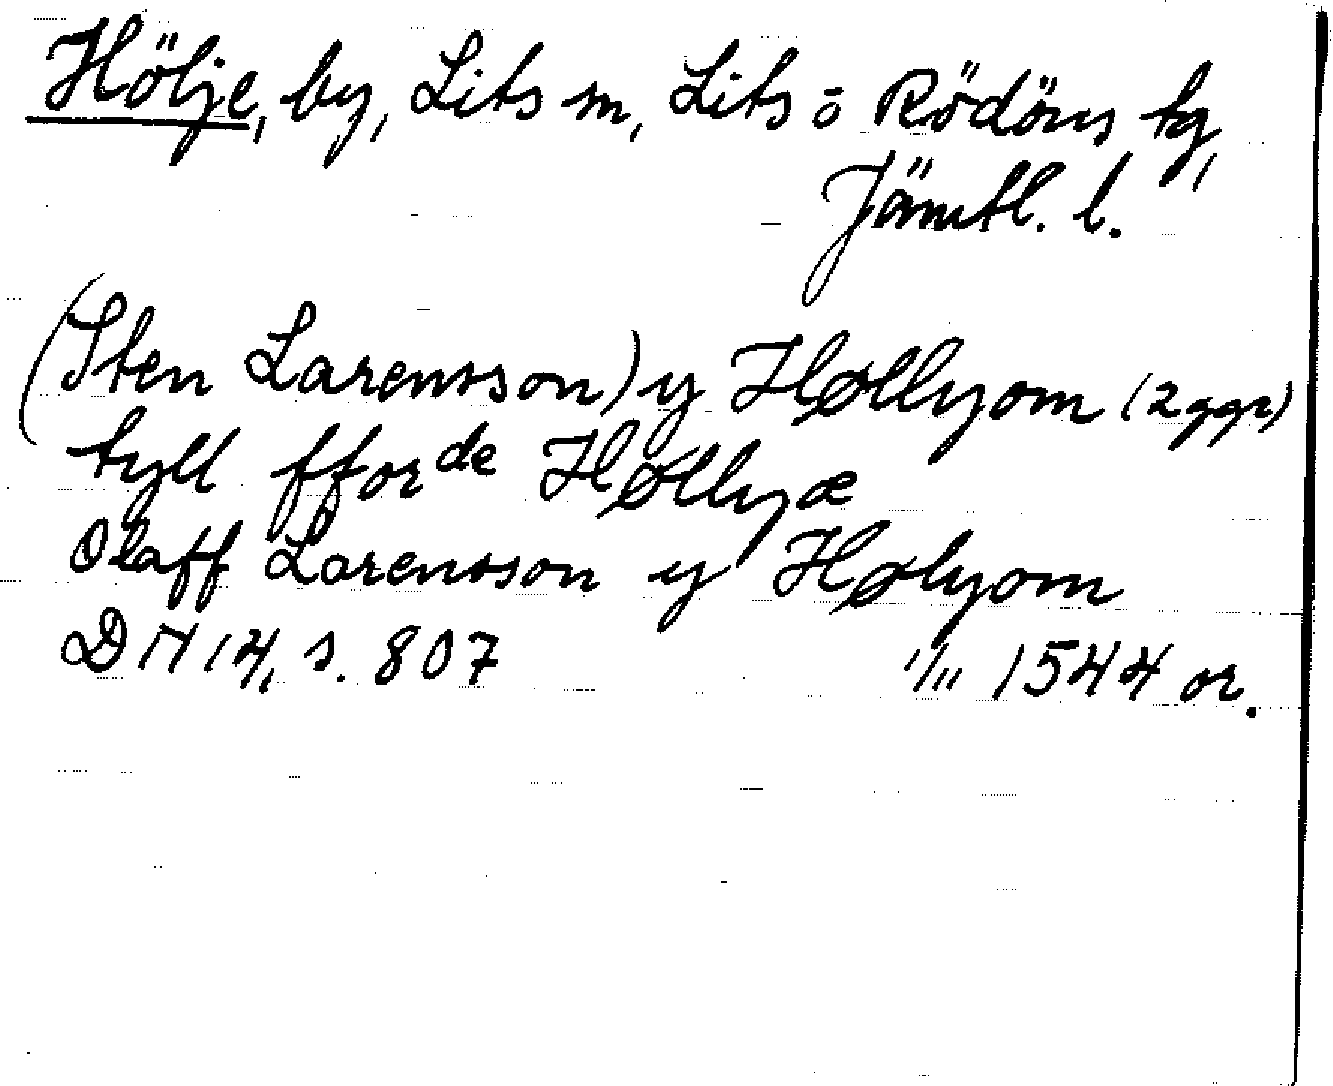 Hölje, by, Lits sn, Lits o Rödöns tg,
Jämtl. l.
(Sten Larensson) y Høllyom (2 ggr)
tyll fforde Høllyæ
Olaff Larensson y Hølyom
DN 14, s. 807 1/111 1544 or.